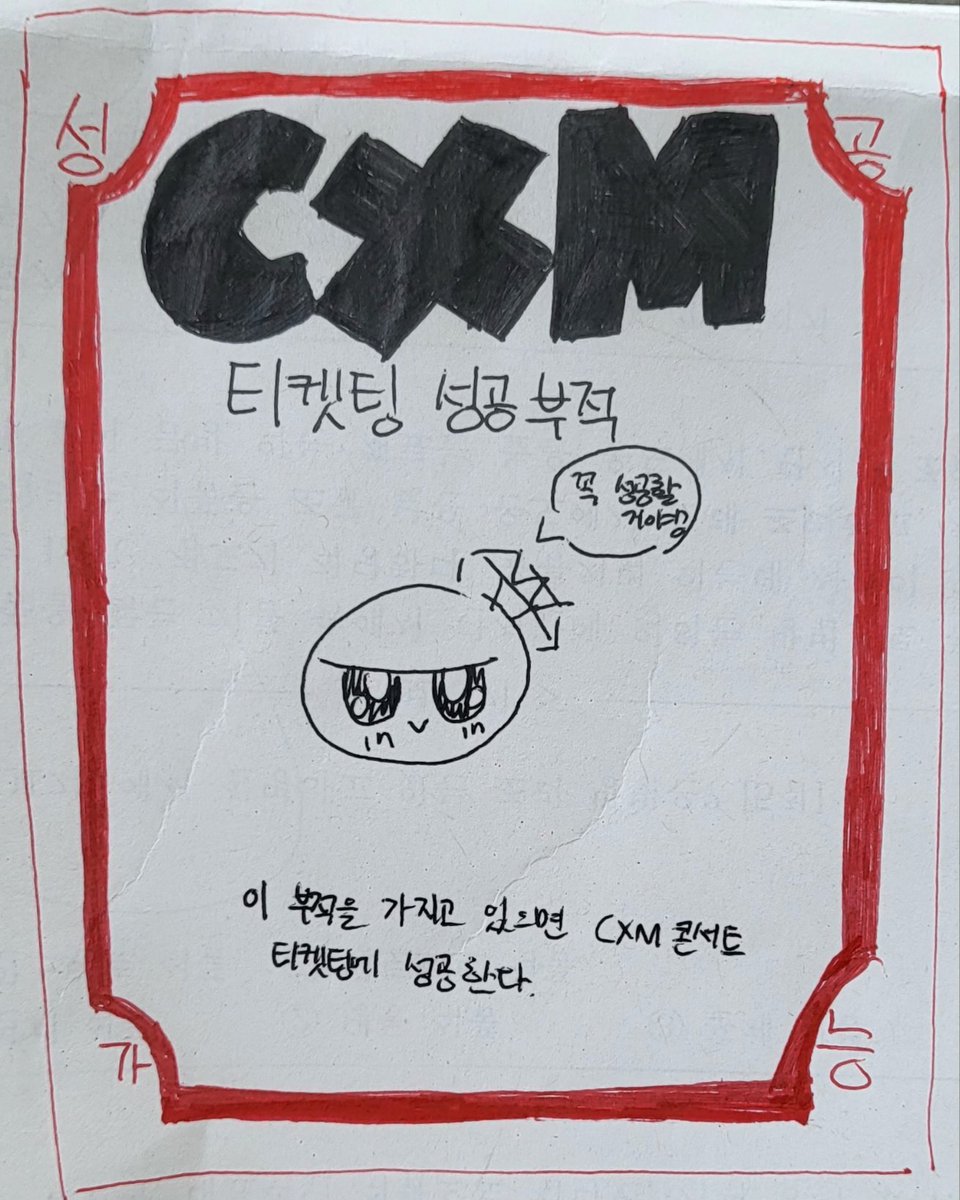 성 공
CXM
티켓팅 성공 부적
꼭 성공할
거야영
이 부적을 가지고 있으면 CXM 콘서트
티켓팅이 성공한다.
가 능